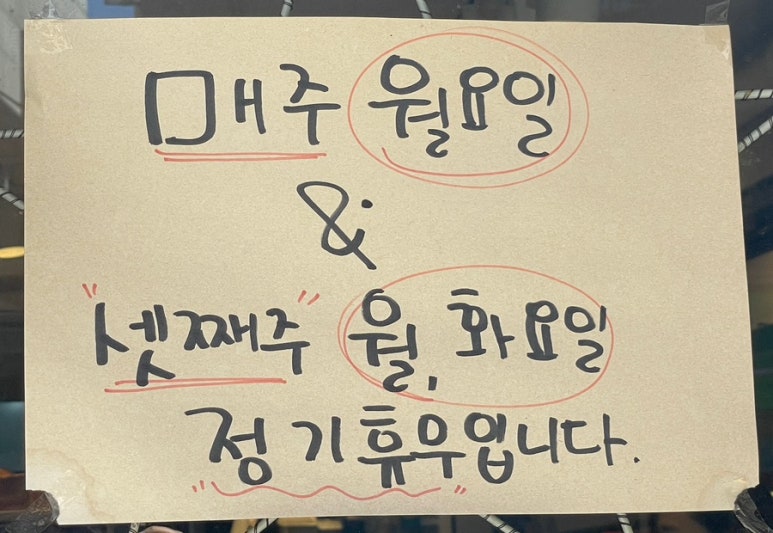 매주 월요일
&
"셋째주" 월, 화요일
"정기휴무"입니다.